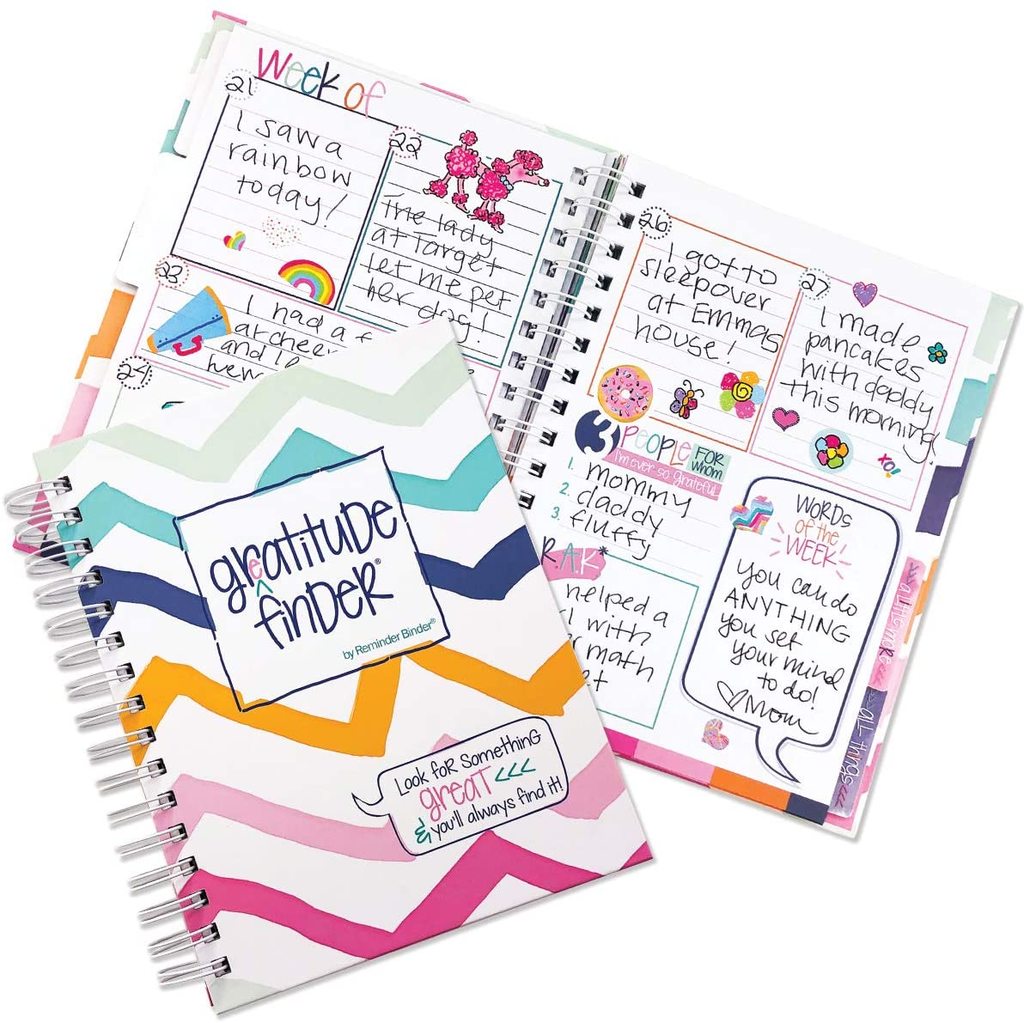 Week of
21
I saw a
rainbow
today!
22
The lady
at Target
let me pet
her dog!
23
I had a f
a cheer
and I
24
26
I got to
sleepover
at Emmas
house!
27
I made
pancakes
with daddy
this morning
XO!
3 PEOPLE FOR whom
I'm ever so grateful
1. mommy
2. daddy
3. fluffy
R.A.K*
helped a
with
math
WORDS
of the
WEEK
you can do
ANYTHING
you set
your mind
to do!
♡ Mom
a little more <<<
all things <<<
greatitude
finder®
by Reminder Binder®
Look for something
great <<<
& you'll always find it!